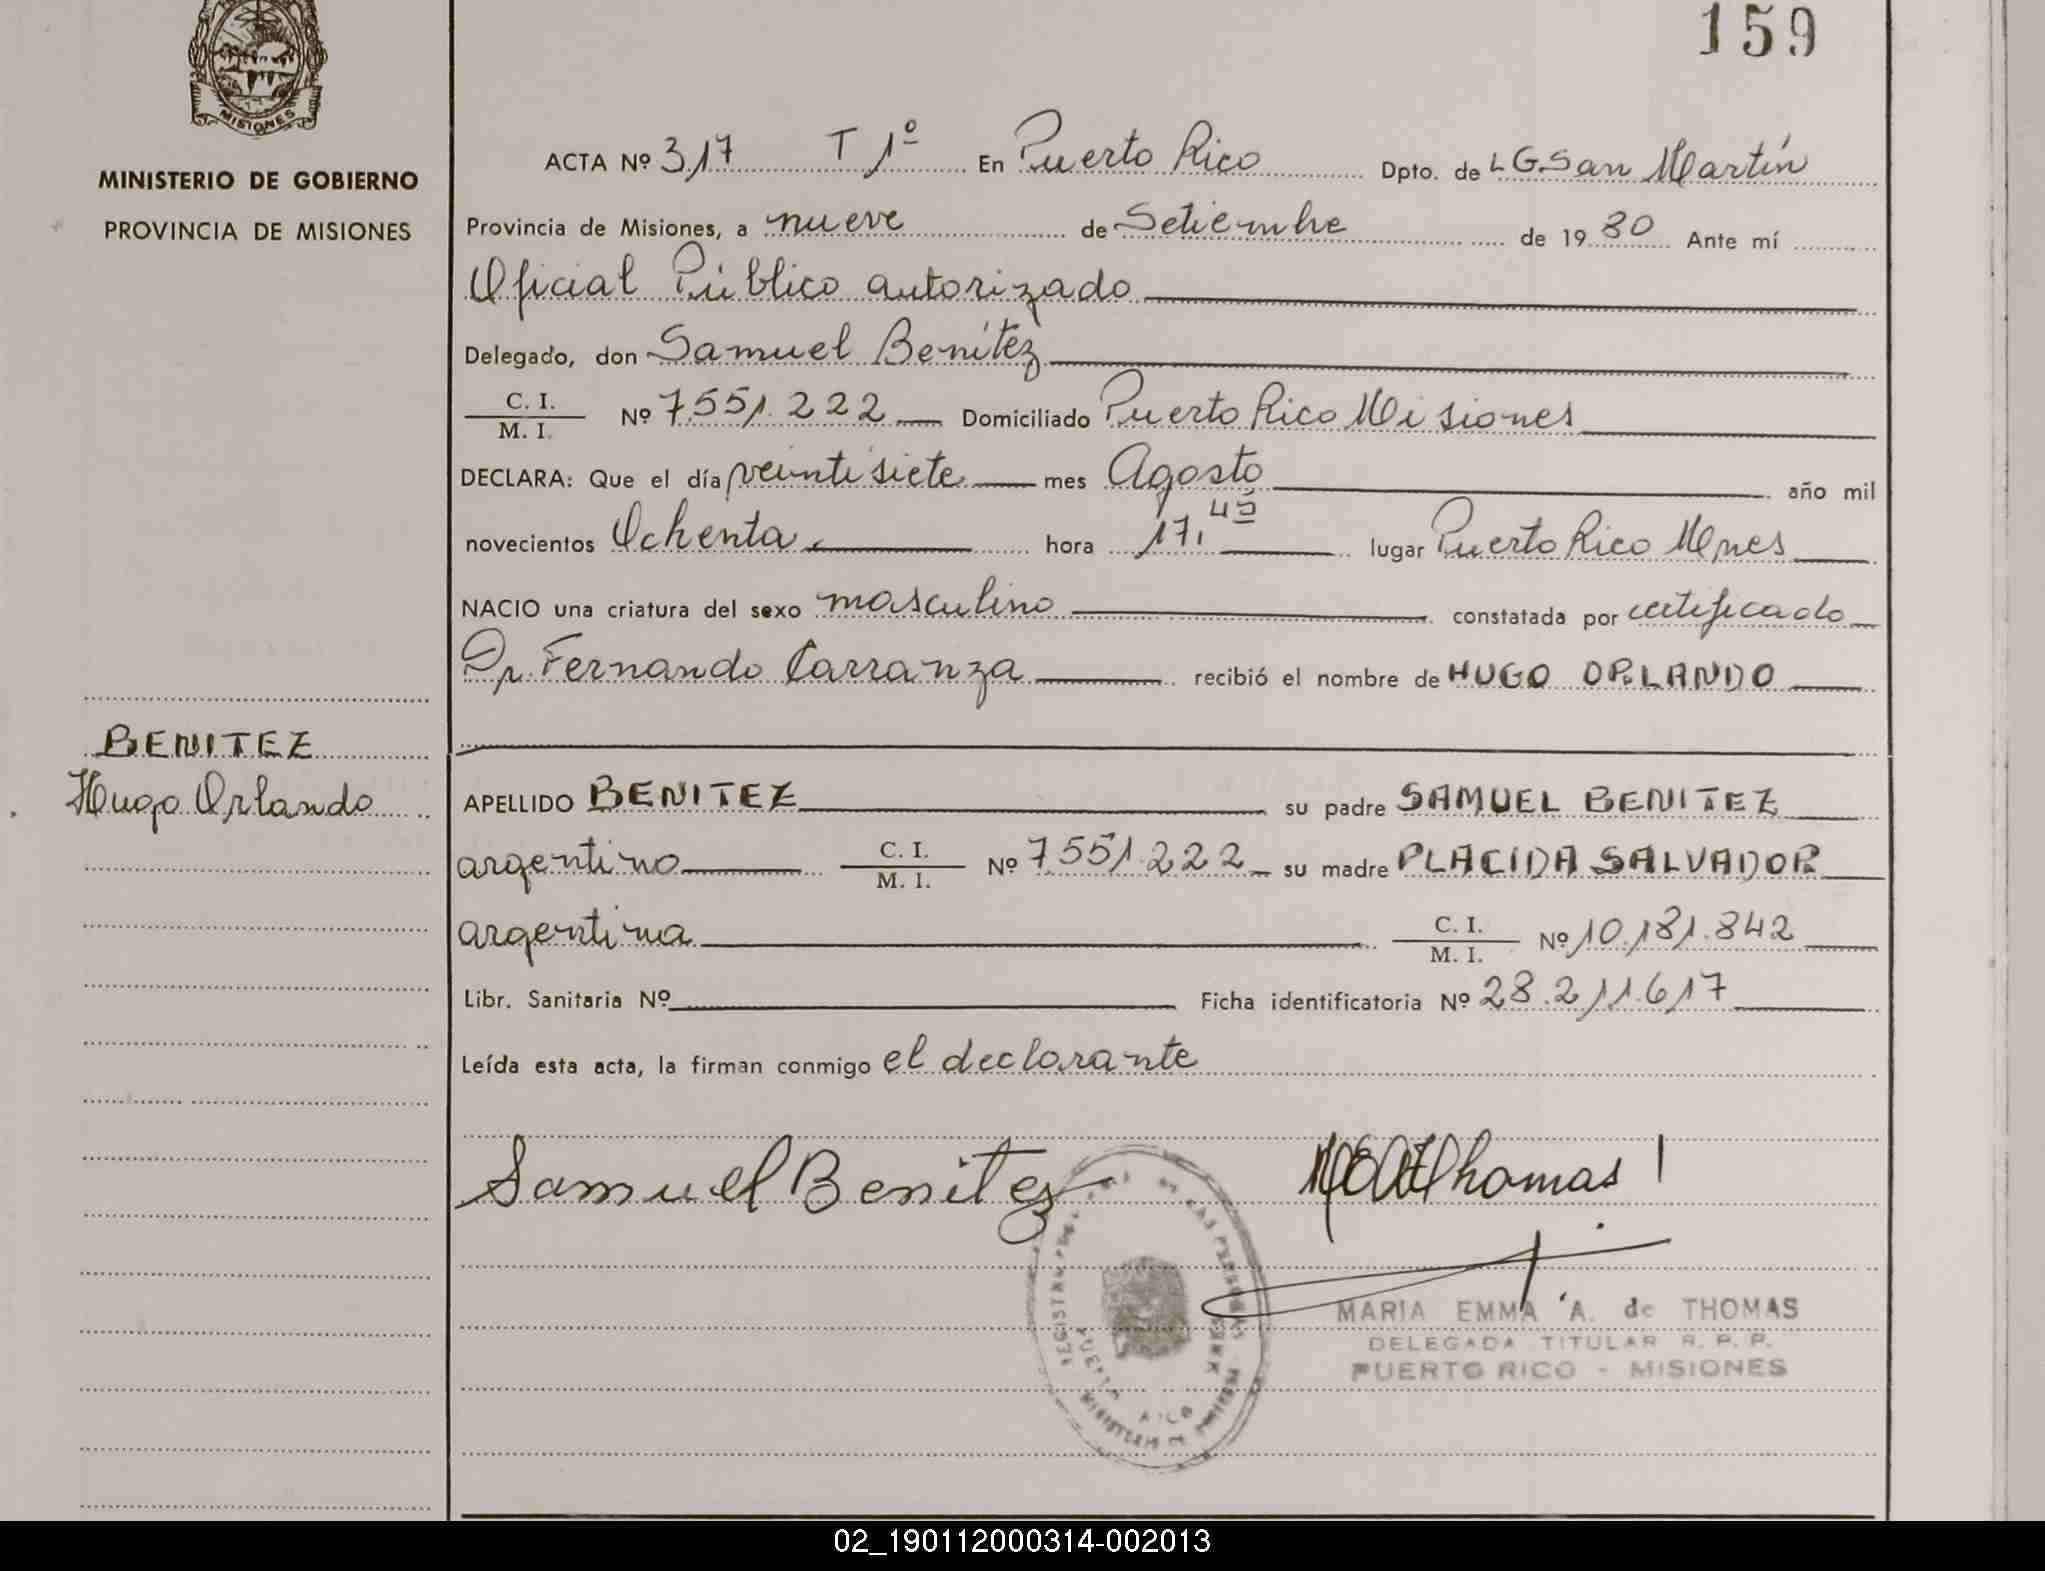 159
MISIONES
MINISTERIO DE GOBIERNO
PROVINCIA DE MISIONES
BENITEZ
Hugo Orlando
ACTA Nº 317 T 1º En Puerto Rico Dpto. de L G. San Martín
Provincia de Misiones, a nueve de Setiembre de 19 80 Ante mí
Oficial Público autorizado
Delegado, don Samuel Benítez
C. I.
M. I. Nº 7.551.222 Domiciliado Puerto Rico Misiones
DECLARA: Que el día veintisiete mes Agosto año mil
novecientos Ochenta. hora 17,45 lugar Puerto Rico Mnes
NACIO una criatura del sexo masculino constatada por certificado
Dr. Fernando Carranza recibió el nombre de HUGO ORLANDO
APELLIDO BENITEZ su padre SAMUEL BENITEZ
argentino C. I. M. I. Nº 7.551.222 su madre PLACIDA SALVADOR
argentina C. I. M. I. Nº 10.181.842
Libr. Sanitaria Nº Ficha identificatoria Nº 28.211.617
Leída esta acta, la firman conmigo el declarante
Samuel Benitez
Thomas
MARIA EMMA A. de THOMAS
DELEGADA TITULAR R. P. P.
PUERTO RICO - MISIONES
02_190112000314-002013